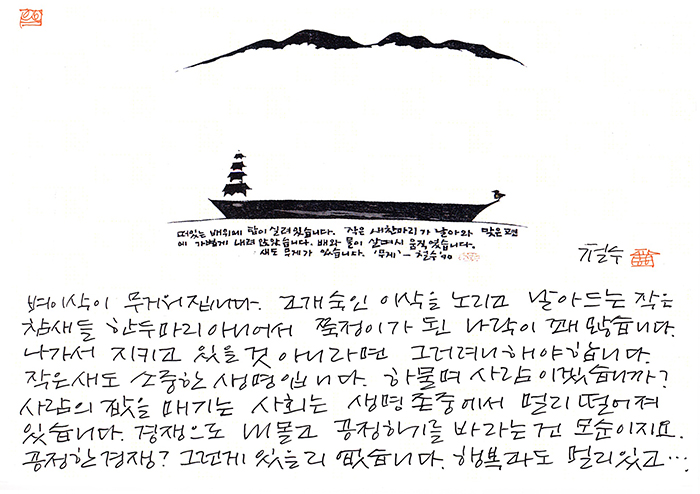 떠있는 배위에 탑이 실려 있습니다. 작은 새 한마리가 날아와 맞은 편
에 가볍게 내려 앉았습니다. 배와 물이 살며시 움직였습니다.
새도 무게가 있습니다. '무게' - 철수 '90
철수
벼이삭이 무거워집니다. 고개숙인 이삭을 노리고 날아드는 작은
참새들 한두마리 아니어서 쭉정이가 된 나락이 꽤 많습니다.
나가서 지키고 있을 것 아니라면 그러려니 해야 합니다.
작은 새도 소중한 생명입니다. 하물며 사람이겠습니까?
사람의 값을 매기는 사회는 생명존중에서 멀리 떨어져
있습니다. 경쟁으로 내몰고 공정하기를 바라는 건 모순이지요.
공정한 경쟁? 그런게 있을리 없습니다. 행복과도 멀리있고…